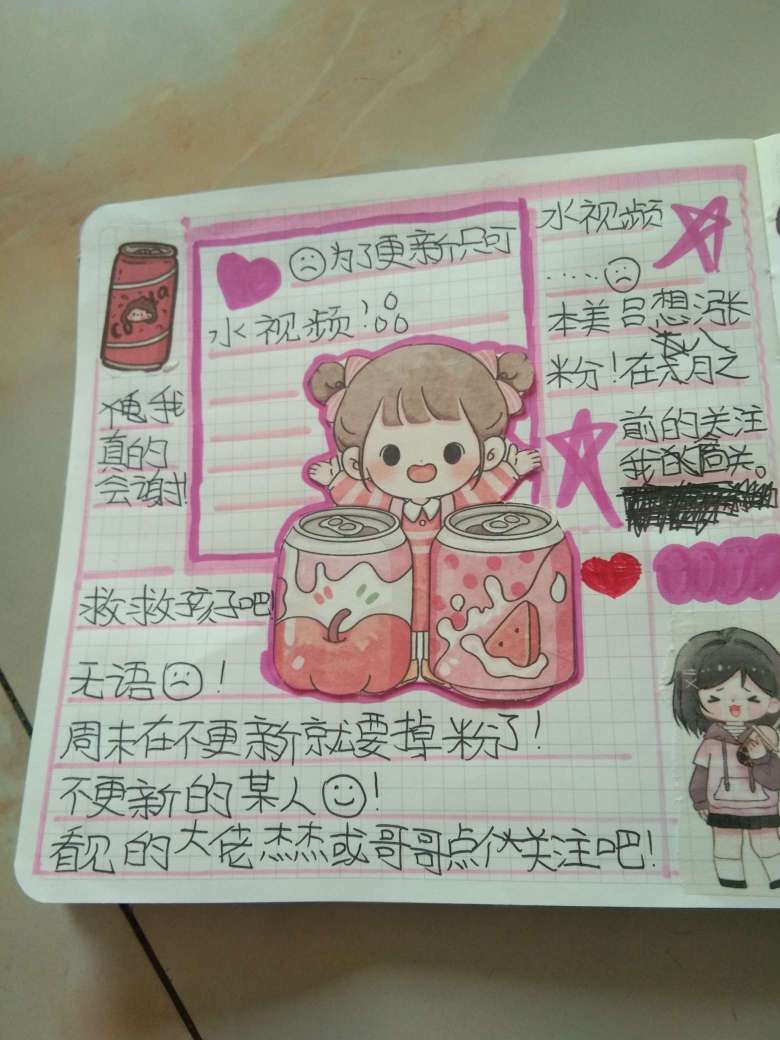 ☹为了更新只可
水视频!
水视频
.....☹
本美吕想涨
粉!在八月之
前的关注
我的回关。
俺我
真的
会谢!
救救孩子吧!
无语☹!
周末在不更新就要掉粉了!
不更新的某人☺!
看见的大佬杰杰或哥哥点个关注吧!